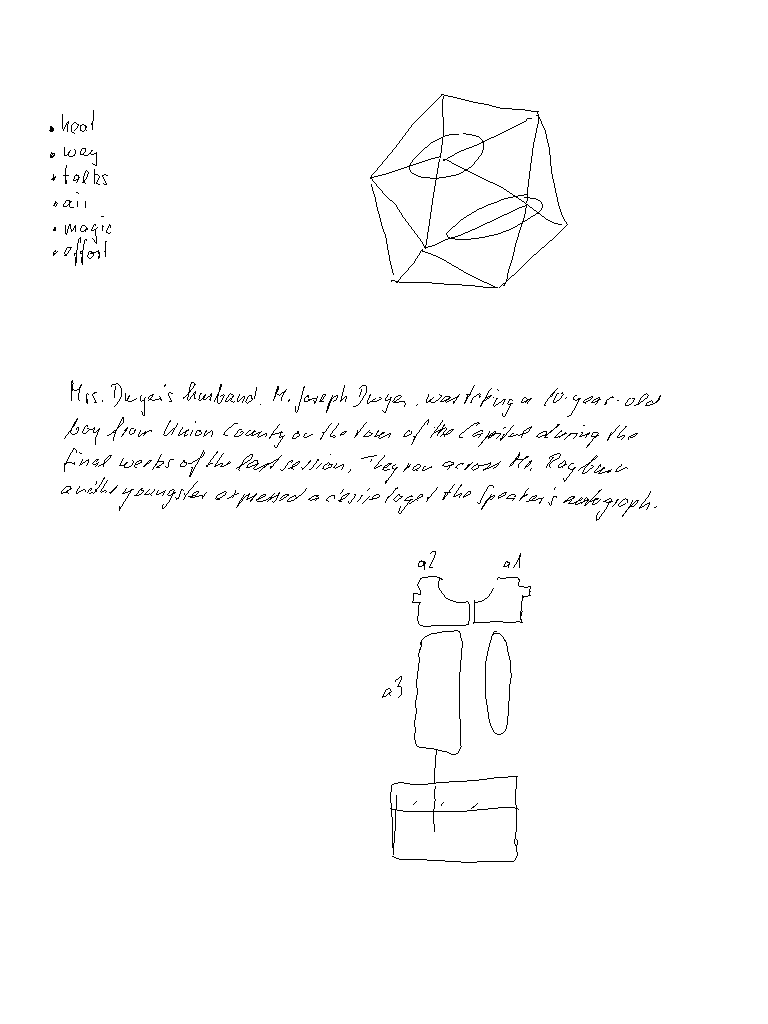 • heat
• way
• talks
• air
• magic
• effort
Mrs. Dwyer's husband, M. Joseph Dwyer, was taking a 10-year-old
boy from Union County on the tour of the Capitol during the
final weeks of the last session. They ran across Mr. Rayburn
and the youngster expressed a desire to get the Speaker's autograph.
a2 a1
a3